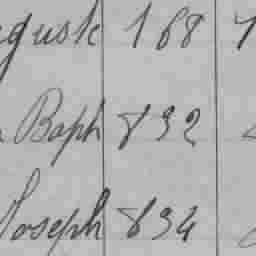 gust 168
Baph 832
Joseph 834